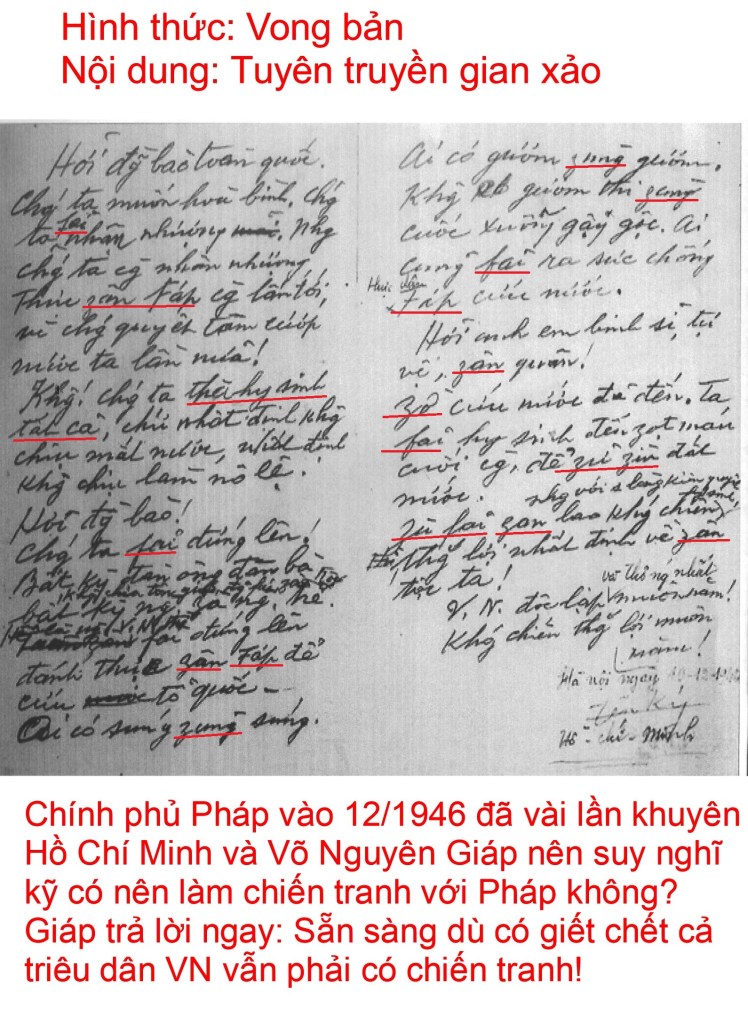 Hình thức: Vong bản
Nội dung: Tuyên truyền gian xảo
Hỡi đồng bào toàn quốc.
Chg ta muốn hoà bình, chg
ta fải nhân nhượng. Nhg
chg ta cg nhân nhượng
Thực zân Fáp cg lấn tới,
vì chg quyết tâm cướp
nước ta lần nữa!
Khg! chg ta thà hy sinh
tất cả, chứ nhất định khg
chịu mất nước, nhất định
khg chịu làm nô lệ.
Hỡi đg bào!
Chg ta fải đứng lên!
Bất kỳ đàn ông đàn bà
bất kỳ ng zà ng trẻ.
fải đứng lên
đánh thực zân Fáp để
cứu tổ quốc –
Ai có súng zùng súng.
Ai có gươm zùng gươm.
Khg có gươm thì zùng
cuốc xuổng gậy gộc. Ai
cũng fải ra sức chống
thực zân
Fáp cứu nước.
Hỡi anh em binh sĩ, tự
vệ, zân quân!
Zờ cứu nước đã đến. Ta
fải hy sinh đến zọt máu
cuối cg, để zữ zìn đất
nước.
Zù fải zan lao khg chiến
nhg với 1 lòng kiên quyết
thg lợi nhất định về zân
tộc ta!
V.N. độc lập và thống nhất muôn năm!
Khg chiến thg lợi muôn
năm!
Hà nội ngày 19-12-1946
Hồ-chí-Minh
Chính phủ Pháp vào 12/1946 đã vài lần khuyên
Hồ Chí Minh và Võ Nguyên Giáp nên suy nghĩ
kỹ có nên làm chiến tranh với Pháp không?
Giáp trả lời ngay: Sẵn sàng dù có giết chết cả
triệu dân VN vẫn phải có chiến tranh!